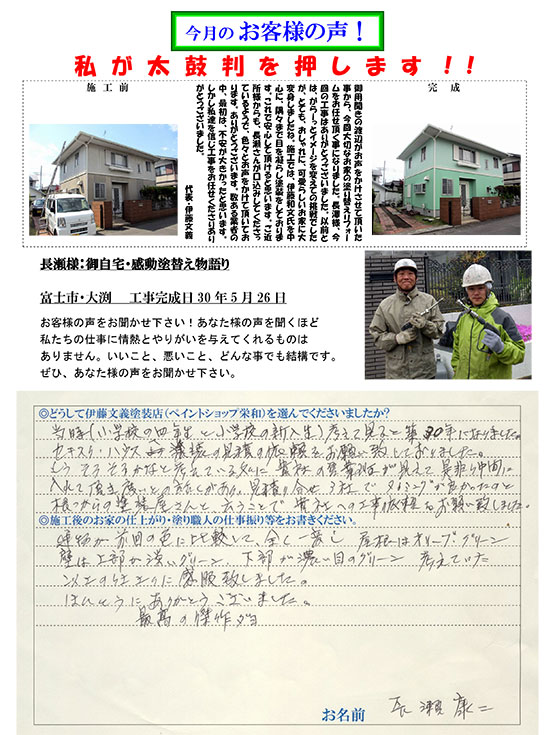 今月の お客様の声！
私が太鼓判を押します!!
施工前
完成
御用聞きの渡辺がお声をかけさせて頂いた
事から、今回大切なお家の塗り替えリフォー
ムをお任せ頂く事になりました長瀬様、今
回の工事はありがとうございました。以前と
は、がらーっとイメージを変えての挑戦でした
が、とても、おしゃれに、可愛らしいお家に大
変身しましたね。施工では、伊藤和文氏を中
心に、隅々まで目を凝らし塗装をしておりま
す。これで安心して頂けると思います。ご近
所様からも、長瀬さんが口込みしてくださっ
ているようで、色々とお声をかけて頂いてお
ります。ありがとうございます。数ある業者の
中、最初は、不安が大きかったと思います。
しかし私達を信じて工事をお任せくださりあり
がとうございました。
代表・伊藤文義
長瀬様：御自宅・感動塗替え物語り
富士市・大渕 工事完成日30年5月26日
お客様の声をお聞かせ下さい！あなた様の声を聞くほど
私たちの仕事に情熱とやりがいを与えてくれるものは
ありません。いいこと、悪いこと、どんな事でも結構です。
ぜひ、あなた様の声をお聞かせ下さい。
◎どうして伊藤文義塗装店（ペイントショップ栄和）を選んでくださいましたか？
当時（小学校の四年生と小学校の新入生）考えて見ると築30年になりました。
セキスイハウス 業様の見積の依頼をお願い致しておりました。
もうそろそろかなと考えている処に 貴社の営業報が見えて 是非仲間に
入れて頂き度いとの話しがあり、見積り合せ3社で タイミングが良かったのと
根っからの塗装屋さんと云うことで 貴社への工事依頼をお願い致しました。
◎施工後のお家の仕上がり・塗り職人の仕事振り等をお書きください。
建物が前回の色に比較して、全く一変し 屋根はオリーブグリーン
壁は上部が淡いグリーン、下部が濃い目のグリーン 考えていた
以上の仕上りに感服致しました。
ほんとうにありがとうございました。
最高の傑作ダヨ
お名前 長瀬康二